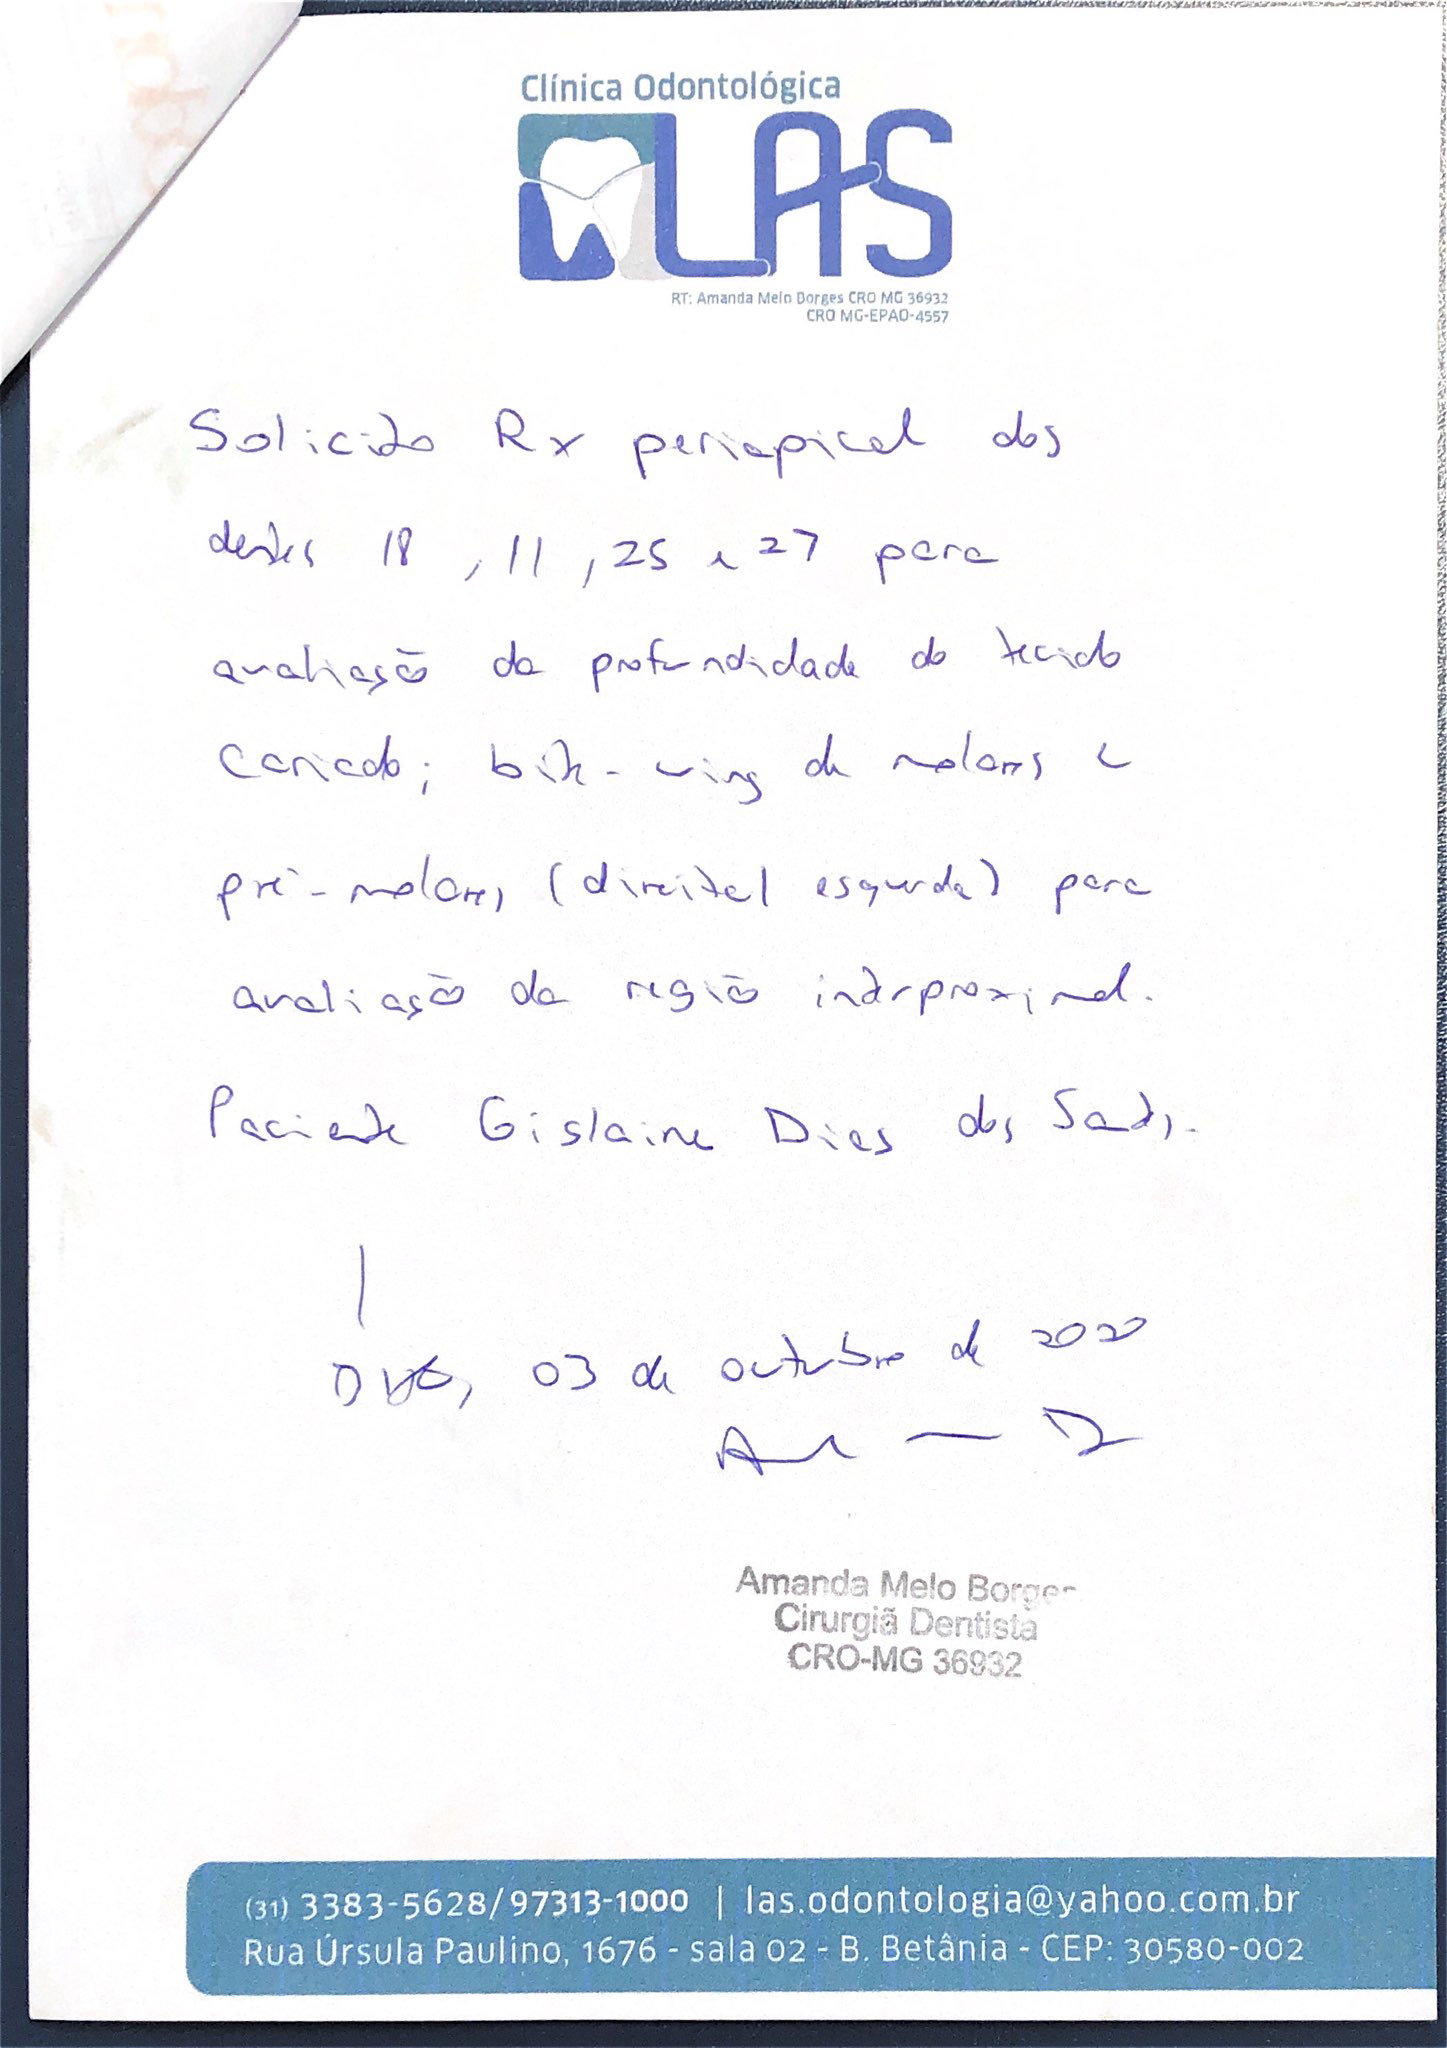 Clínica Odontológica
LAS
RT: Amanda Melo Borges CRO MG 36932
CRO MG-EPAO-4557
Solicito Rx periapical dos
dentes 18, 11, 25 e 27 para
avaliação da profundidade do tecido
cariado; bite-wing de molares e
pré-molares (direita/esquerda) para
avaliação da região interproximal.
Paciente Gislaine Dias dos Santos.
03 de outubro de 2020
Amanda Melo Borges
Cirurgiã Dentista
CRO-MG 36932
(31) 3383-5628/97313-1000 | las.odontologia@yahoo.com.br
Rua Úrsula Paulino, 1676 - sala 02 - B. Betânia - CEP: 30580-002